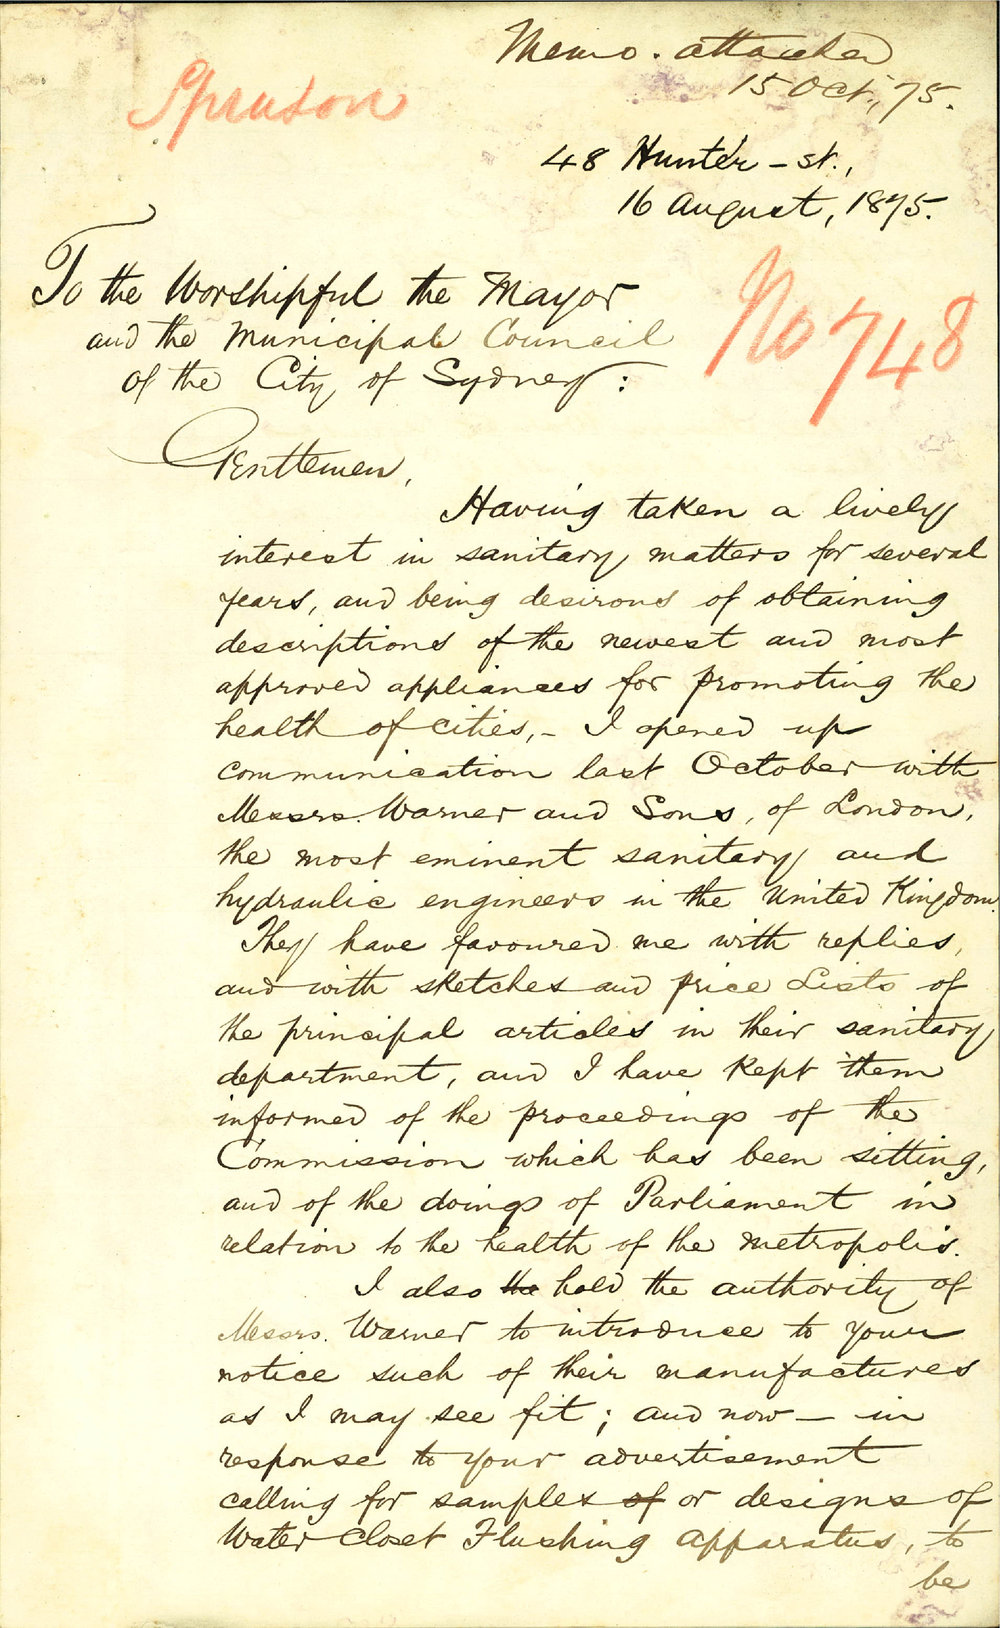 Memo. attached
15 Oct., 75.
Spruson
48 Hunter-st.,
16 August, 1875.
No 748
To the Worshipful the Mayor
and the Municipal Council
of the City of Sydney:
Gentlemen,
Having taken a lively
interest in sanitary matters for several
years, and being desirous of obtaining
descriptions of the newest and most
approved appliances for promoting the
health of cities,- I opened up
communication last October with
Messrs. Warner and Sons, of London,
the most eminent sanitary and
hydraulic engineers in the United Kingdom.
They have favoured me with replies,
and with sketches and price Lists of
the principal articles in their sanitary
department, and I have kept them
informed of the proceedings of the
Commission which has been sitting,
and of the doings of Parliament in
relation to the health of the metropolis.
I also ~~the~~ hold the authority of
Messrs. Warner to introduce to your
notice such of their manufactures
as I may see fit; and now — in
response to your advertisement
calling for samples ~~of~~ or designs of
Water Closet Flushing apparatus, to
be